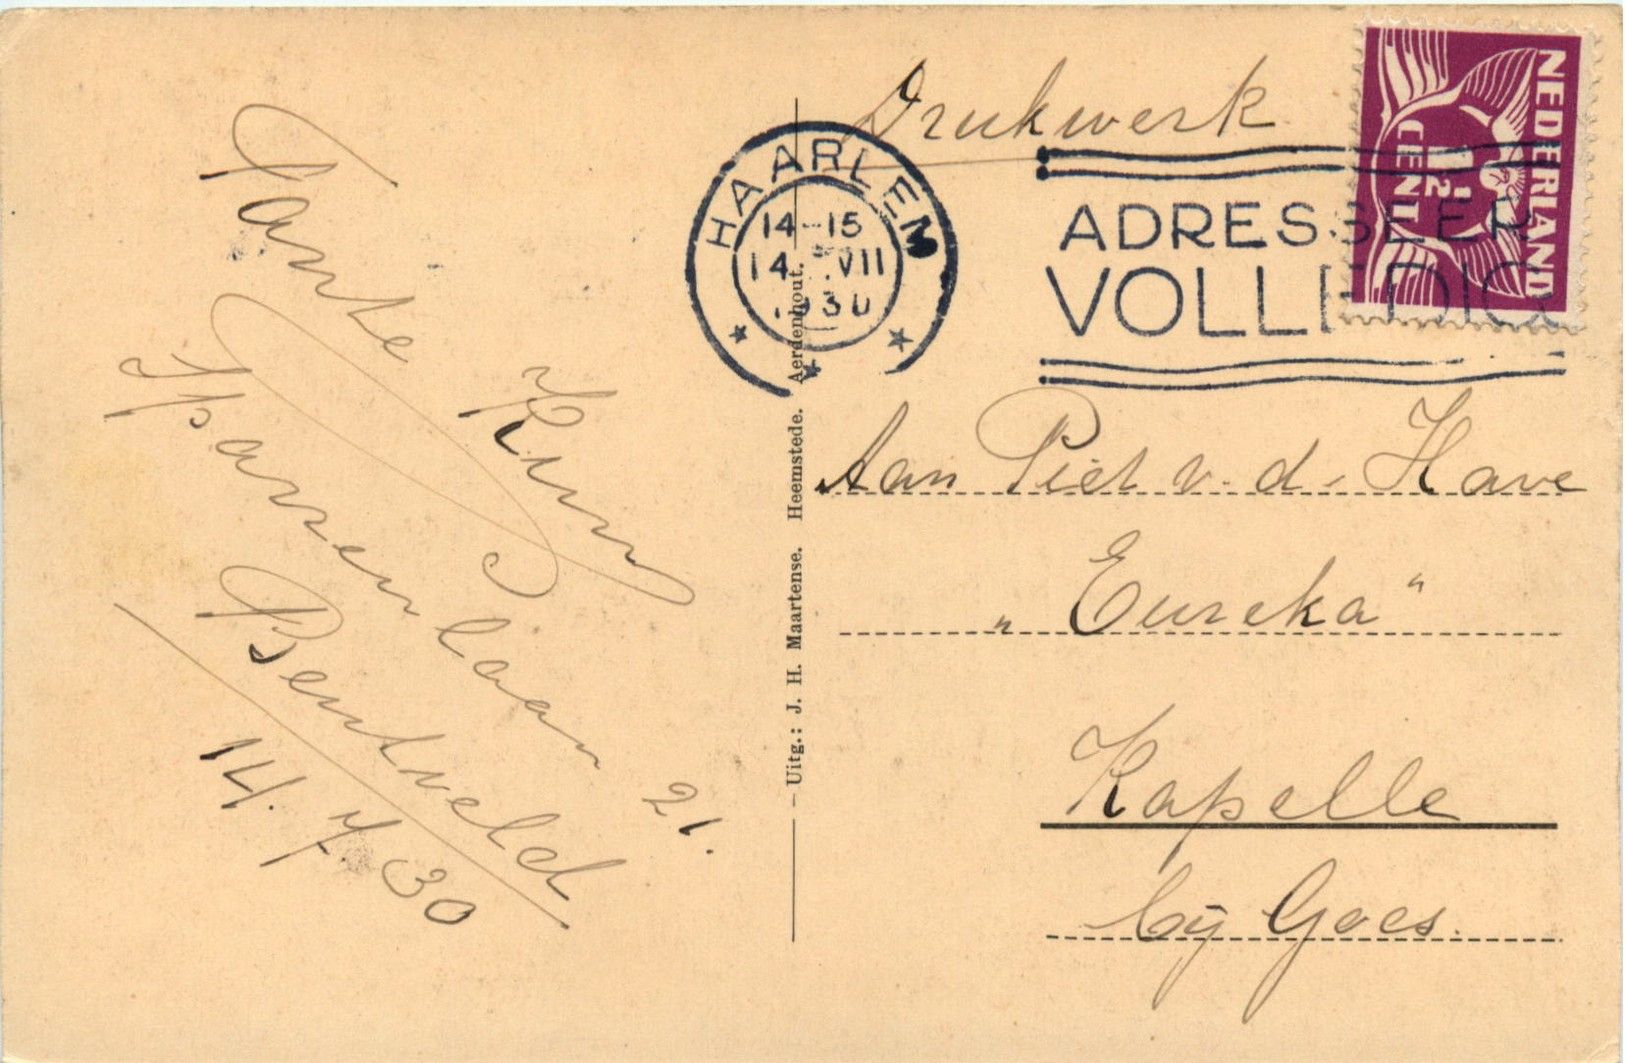 Tante Kun
Sparrenlaan 21.
Bentveld
14. 7. 30
Uitg.: J. H. Maartense. Heemstede. Aerdenhout.
Drukwerk
HAARLEM
14-15
14 VII
1930
ADRESSEER
VOLLEDIG
NEDERLAND
1½
CENT
Aan Piet v. d. Have
„Eureka"
Kapelle
bij Goes.